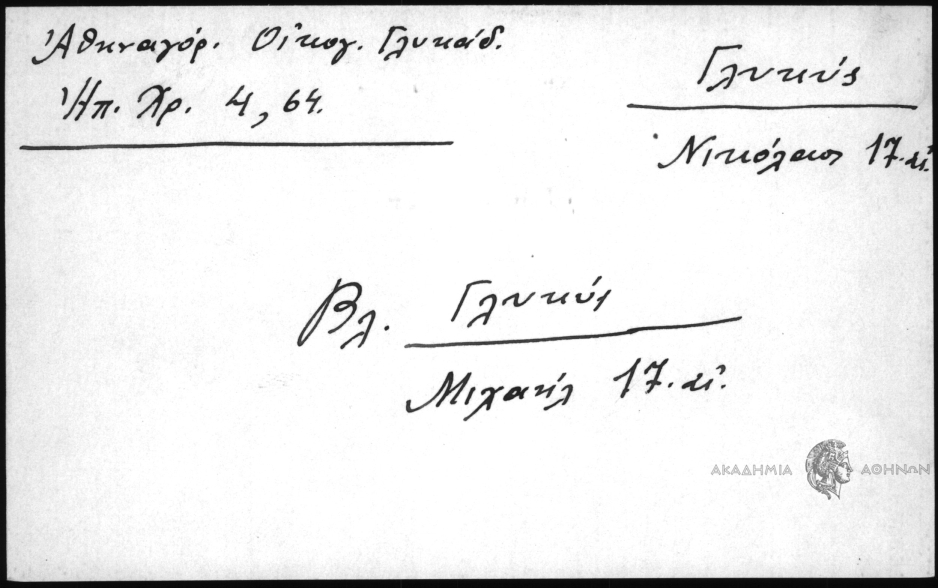 Ἀθηναγόρ. Οἰκογ. Γλυκάδ.
Ἠπ. Χρ. 4, 64.
Γλυκύς
Νικόλαος 17. αἰ.
Βλ. Γλυκύς
Μιχαήλ 17. αἰ.
ΑΚΑΔΗΜΙΑ ΑΘΗΝΩΝ